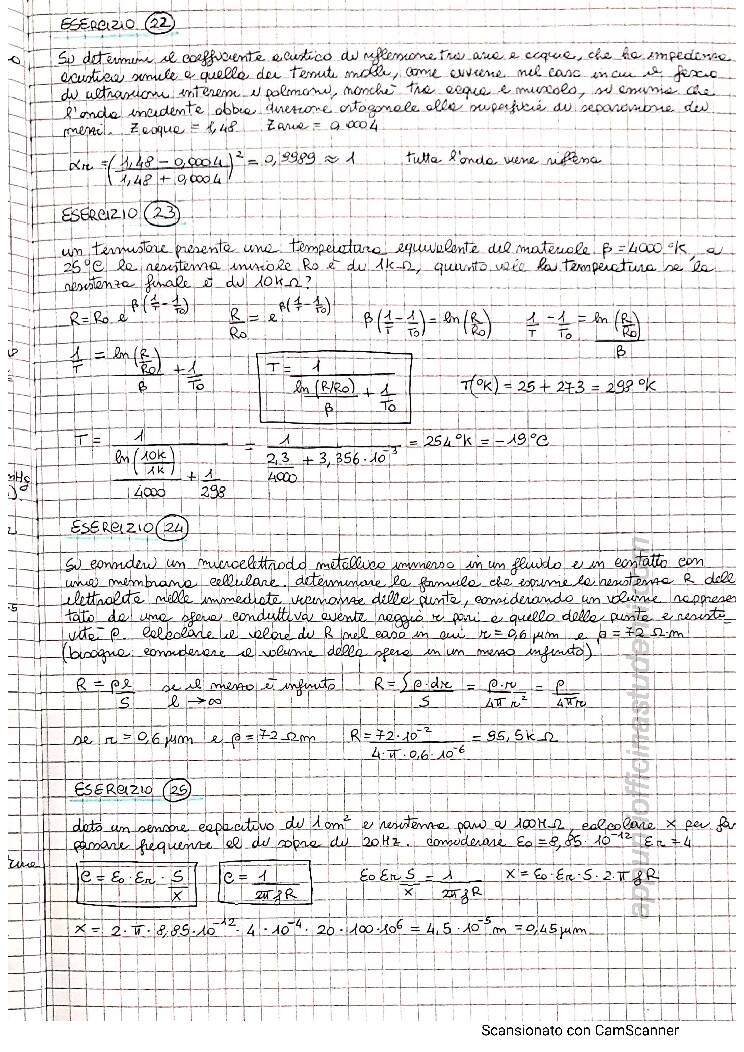 ESERCIZIO 22
Si determini il coefficiente acustico di riflessione tra aria e acqua, che ha impedenza
acustica simile a quella dei tessuti molli, come avviene nel caso in cui il fascio
di ultrasuoni interessi i polmoni, nonché tra acqua e muscolo, si assuma che
l'onda incidente abbia direzione ortogonale alla superficie di separazione dei
mezzi. Z acqua = 1,48 Z aria = 0,0004
αr = (1,48 - 0,0004 / 1,48 + 0,0004)² = 0,9989 ≈ 1 tutta l'onda viene riflessa
ESERCIZIO 23
un termistore presenta una temperatura equivalente del materiale β = 4000 °K, a
25°C la resistenza iniziale R0 è di 1kΩ, quanto vale la temperatura se la
resistenza finale è di 10kΩ?
R = R0 e^β(1/T - 1/T0) R/R0 = e^β(1/T - 1/T0) β(1/T - 1/T0) = ln(R/R0) 1/T - 1/T0 = ln(R/R0)/β
1/T = ln(R/R0)/β + 1/T0 T = 1/(ln(R/R0)/β + 1/T0) T(°K) = 25 + 273 = 298 °K
T = 1/(ln(10k/1k)/4000 + 1/298) = 1/(2,3/4000 + 3,356·10⁻³) = 254 °K = -19°C
mHg
ESERCIZIO 24
Si consideri un microelettrodo metallico immerso in un fluido e in contatto con
una membrana cellulare. determinare la formula che esprime la resistenza R dell
elettrolita nelle immediate vicinanze della punta, considerando un volume rappresen
tato da una sfera conduttiva avente raggio r pari a quello della punta e resisti
vità ρ. Calcolare il valore di R nel caso in cui r = 0,6 μm e ρ = 72 Ω·m
(bisogna considerare il volume della sfera in un mezzo infinito)
R = ρl/S se il mezzo è infinito l → ∞ R = ∫ρ·dr/S = ρ·r/4πr² = ρ/4πr
se r = 0,6 μm e ρ = 72 Ωm R = 72·10⁻²/4·π·0,6·10⁻⁶ = 95,5k Ω
ESERCIZIO 25
dato un sensore capacitivo di 1 cm² e resistenza pari a 100MΩ, calcolare x per far
passare frequenze al di sopra di 20Hz. considerare ε0 = 8,85·10⁻¹² εr = 4
C = ε0·εr·S/x C = 1/2πfR ε0 εr S/x = 1/2πfR x = ε0·εr·S·2·πfR
x = 2·π·8,85·10⁻¹²·4·10⁻⁴·20·100·10⁶ = 4,5·10⁻⁵m = 0,45μm
appuntiofficinastudenti.com
Scansionato con CamScanner